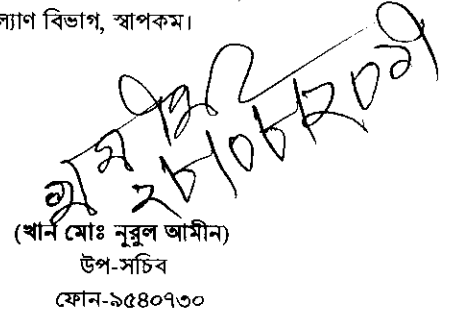 ল্যাণ বিভাগ, স্বাপকম।
২৮/০৮/২০১৭
(খান মোঃ নূরুল আমীন)
উপ-সচিব
ফোন-৯৫৪০৭৩০